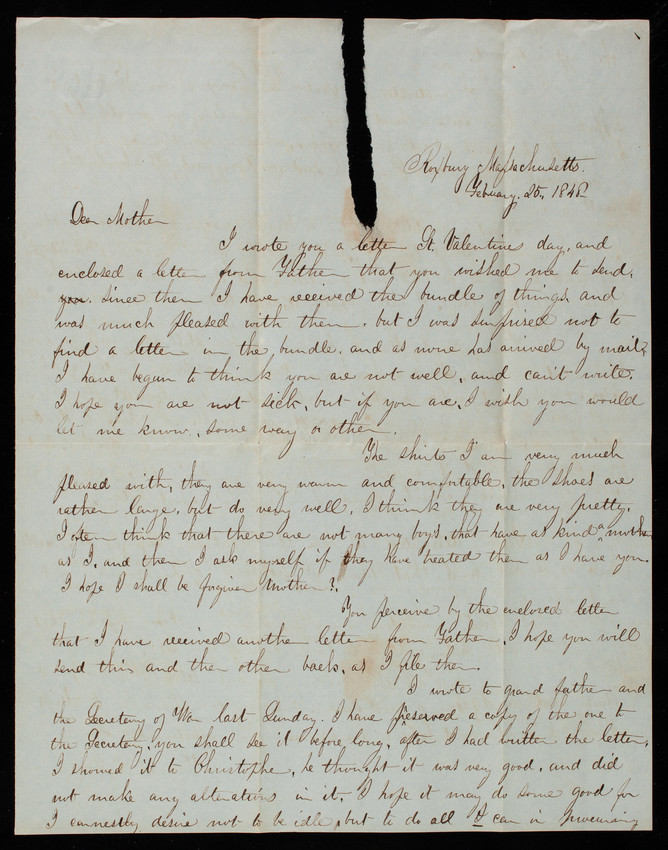 Roxbury Massachusetts.
February, 25., 1848
Dear Mother
I wrote you a letter St. Valentines day, and
enclosed a letter from Father that you wished me to send,
you. since then I have received the bundle of things, and
was much pleased with them. but I was surprised not to
find a letter in the bundle. and as none has arrived by mail,
I have began to think you are not well, and can't write.
I hope you are not sick, but if you are, I wish you would
let me know, some way or other.
The shirts I am very much
pleased with, they are very warm and comfortable, the shoes are
rather large, but do very well. I think they are very pretty.
I often think that there are not many boys, that have as kind a mother
as I, and then I ask myself if they have treated them as I have you.
I hope I shall be forgiven Mother?.
You perceive by the enclosed letter
that I have received another letter from Father, I hope you will
send this and the other back, as I file them.
I wrote to grand father and
the Secretary of War last Sunday. I have preserved a copy of the one to
the Secretary, you shall see it before long, after I had written the letter,
I showed it to Christophe, he thought it was very good, and did
not make any alterations in it. I hope it may do some good for
I earnestly desire not to be idle, but to do all I can in procuring